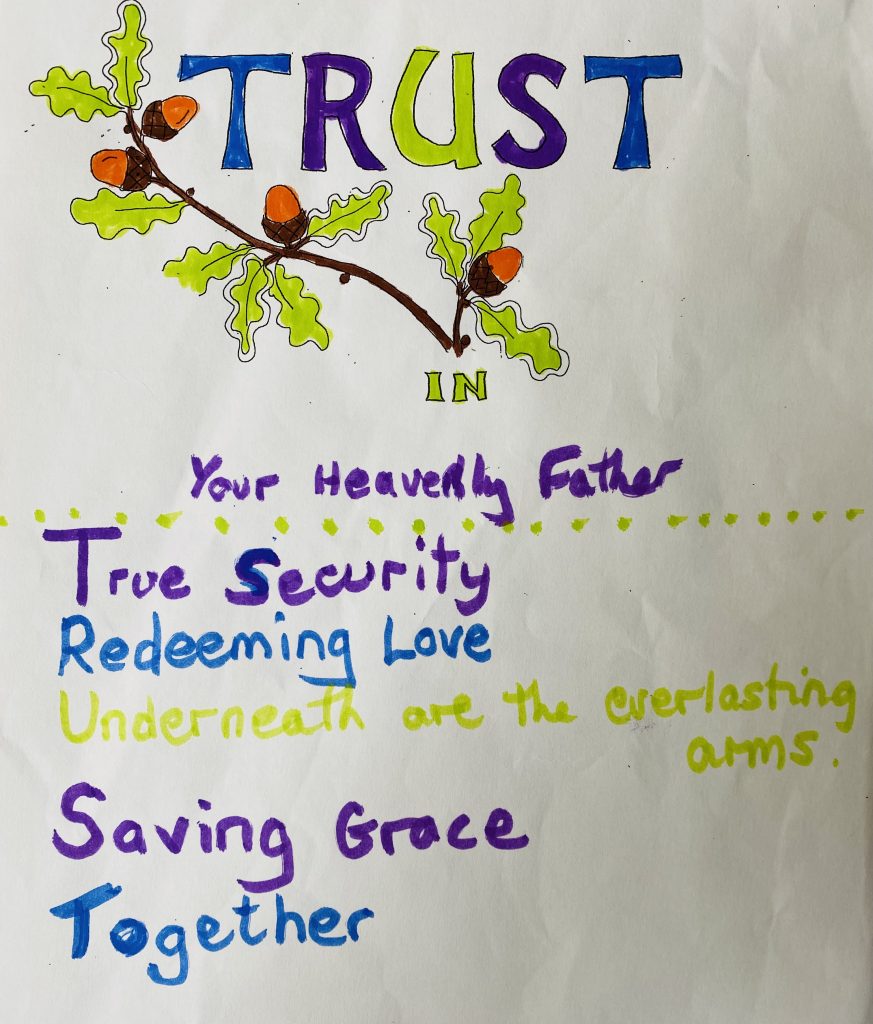 TRUST
IN
Your Heavenly Father
True Security
Redeeming Love
Underneath are the everlasting
arms.
Saving Grace
Together